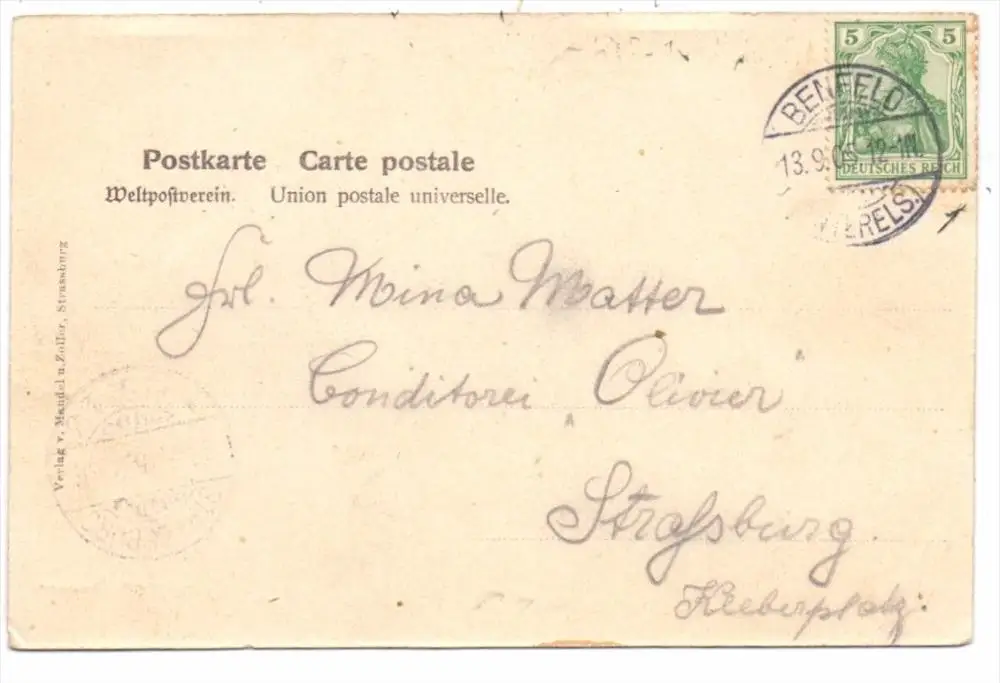 5 5
DEUTSCHES REICH
BENFELD
13.9.05 12-1N.
(UNTERELS.)
Postkarte Carte postale
Weltpoſtverein. Union postale universelle.
Frl. Mina Matter
Conditorei Olivier
Straſsburg
Kleberplatz.
Verlag v. Mandel u. Zoller, Strassburg